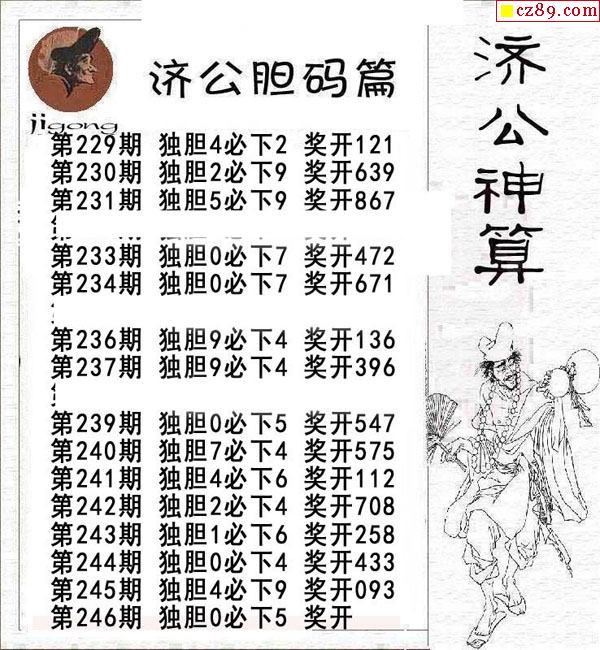 cz89.com
济公胆码篇
jigong
第229期 独胆4必下2 奖开121
第230期 独胆2必下9 奖开639
第231期 独胆5必下9 奖开867
第233期 独胆0必下7 奖开472
第234期 独胆0必下7 奖开671
第236期 独胆9必下4 奖开136
第237期 独胆9必下4 奖开396
第239期 独胆0必下5 奖开547
第240期 独胆7必下4 奖开575
第241期 独胆4必下6 奖开112
第242期 独胆2必下4 奖开708
第243期 独胆1必下6 奖开258
第244期 独胆0必下4 奖开433
第245期 独胆4必下9 奖开093
第246期 独胆0必下5 奖开
济公神算